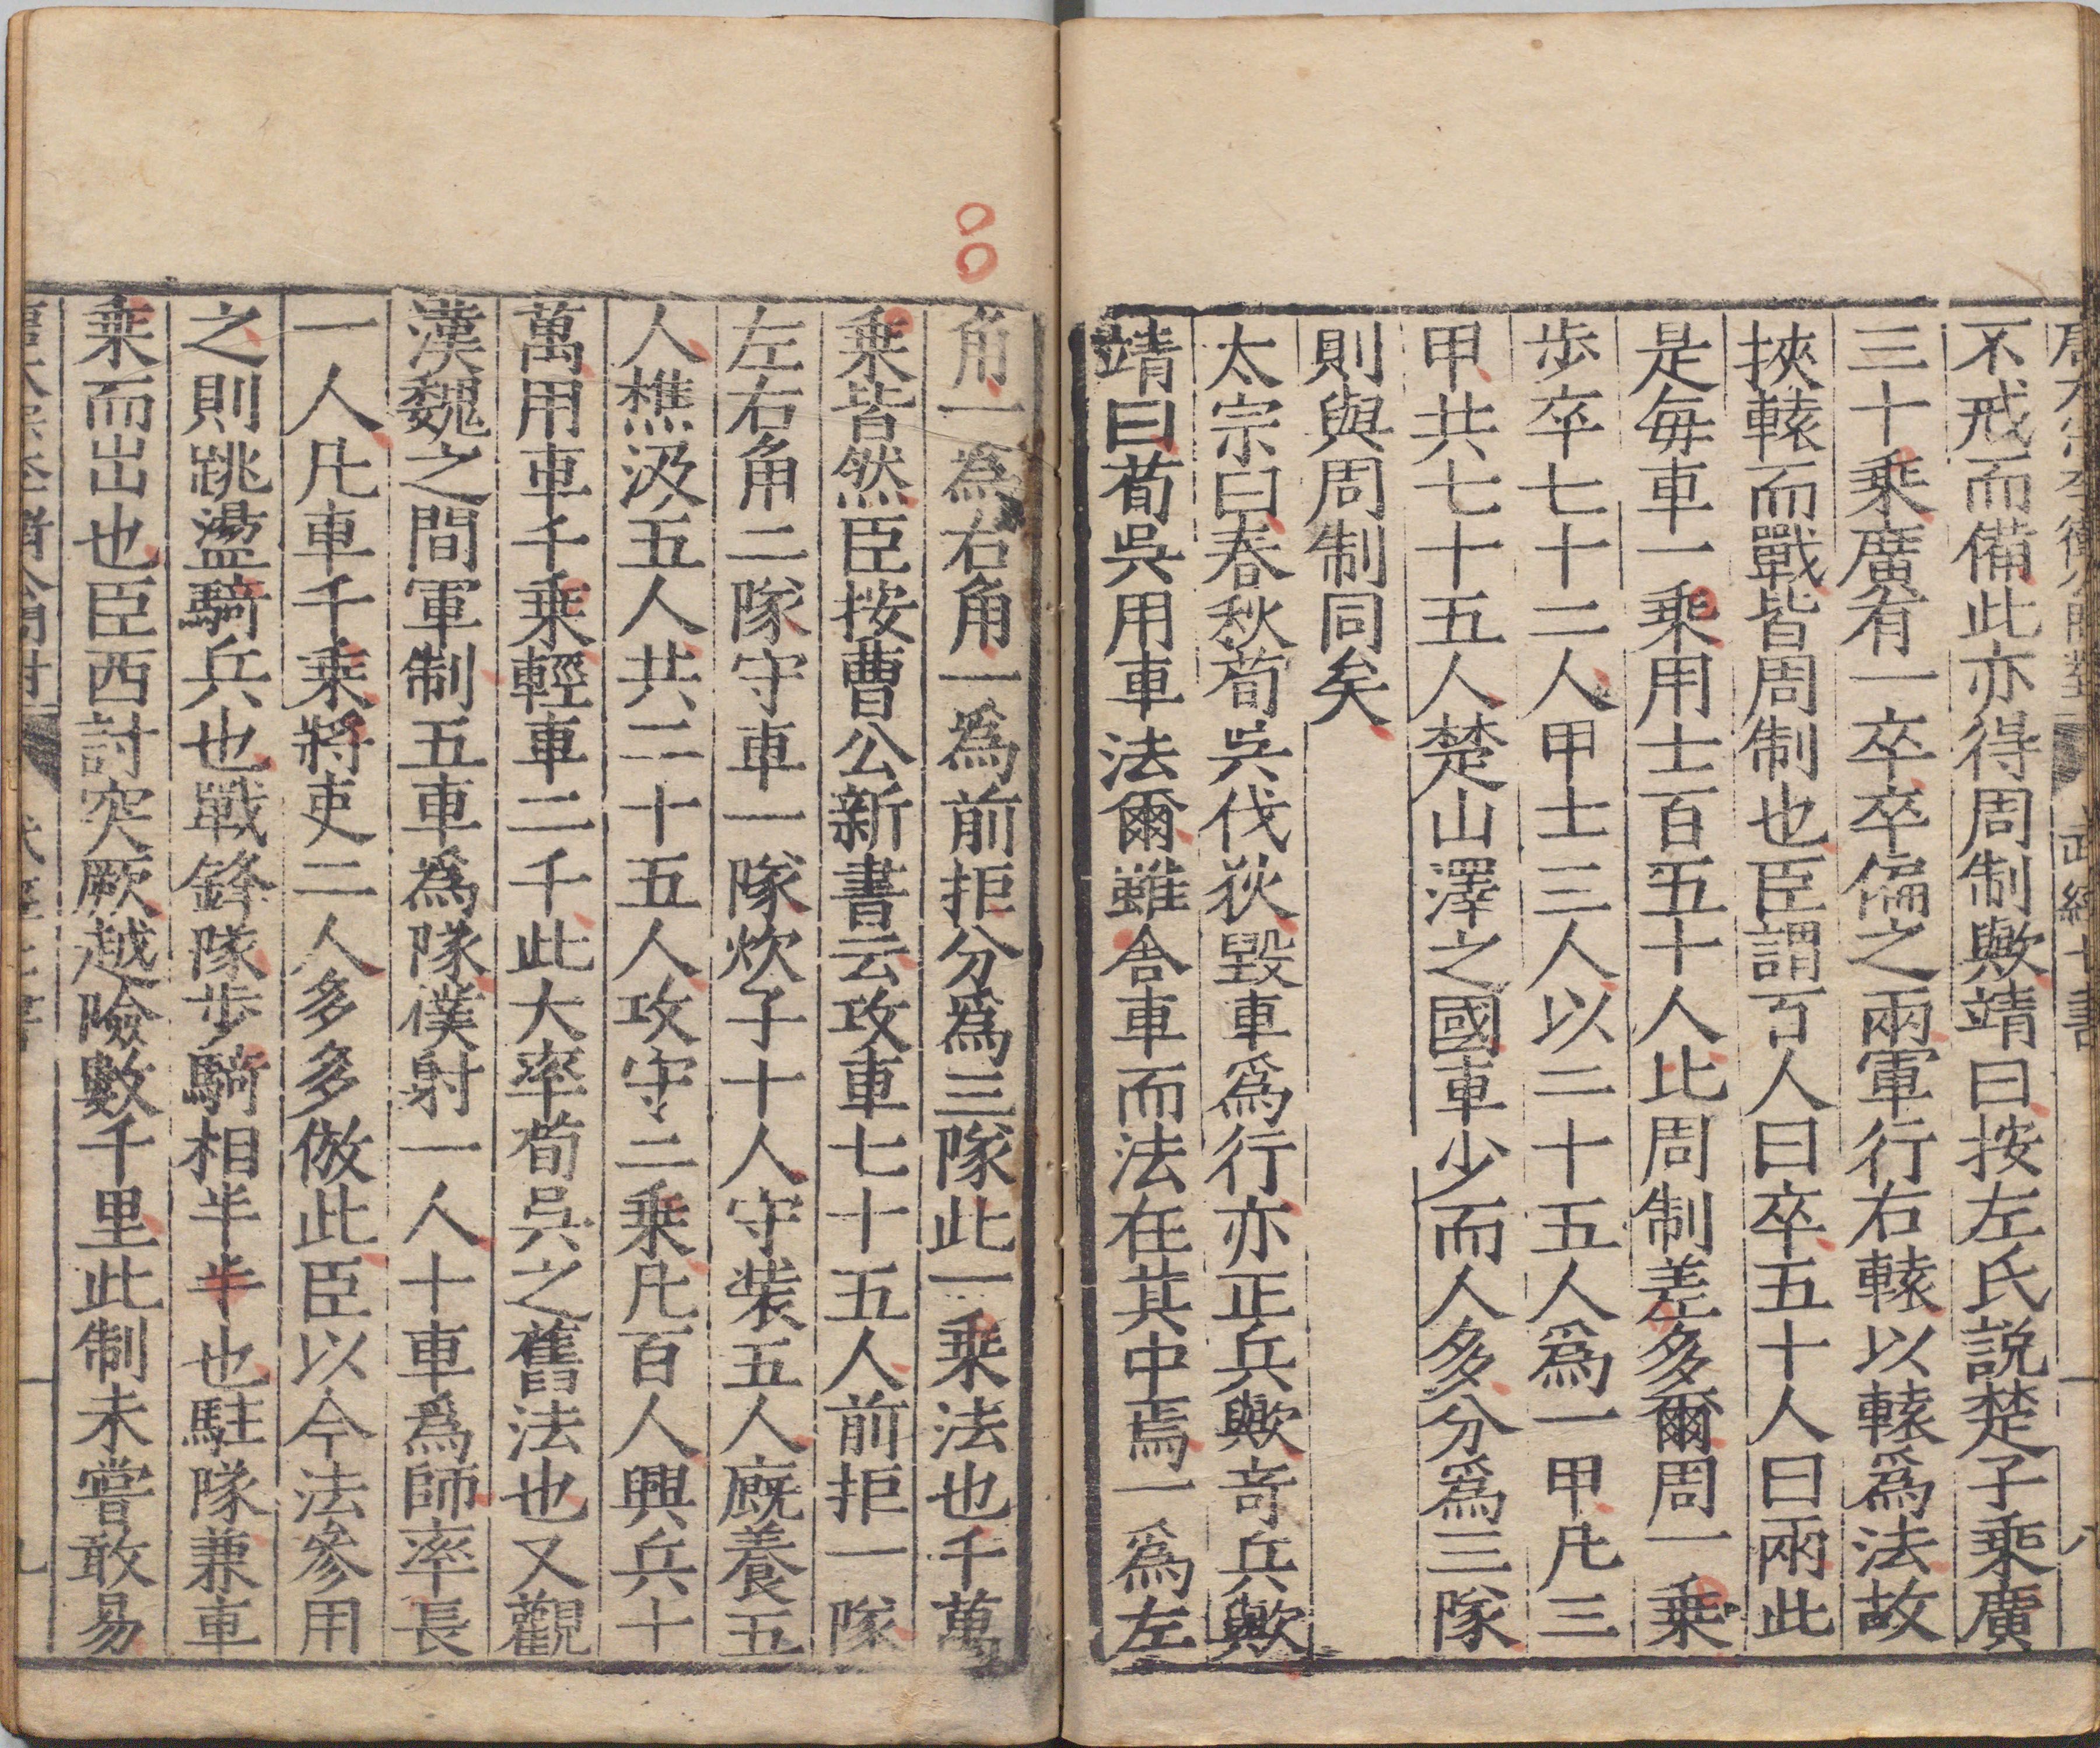 不戒而備此亦得周制歟靖曰按左氏説楚子乘廣
三十乘廣有一卒卒偏之兩軍行右轅以轅爲法故
挾轅而戰皆周制也臣謂百人曰卒五十人曰兩此
是每車一乘用士百五十人比周制差多爾周一乘
歩卒七十二人甲士三人以二十五人爲一甲凡三
甲共七十五人楚山澤之國車少而人多分爲三隊
則與周制同矣
太宗曰春秋荀吳伐狄毀車爲行亦正兵歟竒兵歟
靖曰荀吳用車法爾雖舎車而法在其中焉一爲左
角一爲右角一爲前拒分爲三隊此一乘法也千萬
乘皆然臣按曹公新書云攻車七十五人前拒一隊
左右角二隊守車一隊炊子十人守装五人廐養五
人樵汲五人共二十五人攻守二乘凡百人興兵十
萬用車千乘輕車二千此大率荀吳之舊法也又觀
漢魏之間軍制五車爲隊僕射一人十車爲師率長
一人凡車千乘將吏二人多多倣此臣以今法參用
之則跳盪騎兵也戰鋒隊歩騎相半半也駐隊兼車
乘而出也臣西討突厥越險數千里此制未嘗敢易